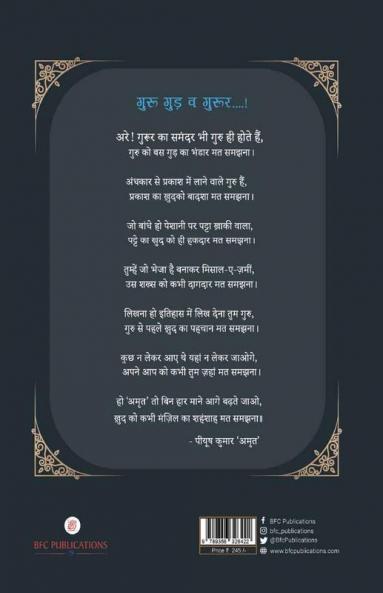 गुरू गुड़ व गुरूर....!
अरे! गुरूर का समंदर भी गुरु ही होते हैं,
गुरु को बस गुड़ का भंडार मत समझना।
अंधकार से प्रकाश में लाने वाले गुरु हैं,
प्रकाश का ख़ुदको बादशा मत समझना।
जो बांधे हो पेशानी पर पट्टा ख़ाकी वाला,
पट्टे का ख़ुद को ही हकदार मत समझना।
तुम्हें जो भेजा है बनाकर मिसाल-ए-ज़मीं,
उस शख्स को कभी दाग़दार मत समझना।
लिखना हो इतिहास में लिख देना तुम गुरु,
गुरु से पहले ख़ुद का पहचान मत समझना।
कुछ न लेकर आए थे यहां न लेकर जाओगे,
अपने आप को कभी तुम ज़हां मत समझना।
हो 'अमृत' तो बिन हार माने आगे बढ़ते जाओ,
ख़ुद को कभी मंज़िल का शहंशाह मत समझना॥
- पीयूष कुमार 'अमृत'
BFC PUBLICATIONS
9 789355 328422
Price ₹ 245 /-
BFC Publications
bfc_publications
@BfcPublications
www.bfcpublications.com